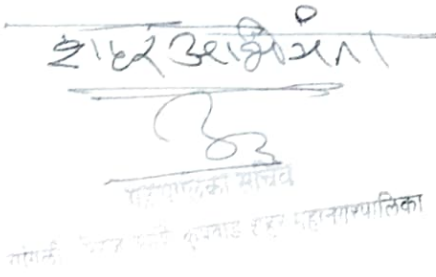 शहर अभियंता
महापालिका सचिव
सांगली मिरज आणि कुपवाड शहर महानगरपालिका